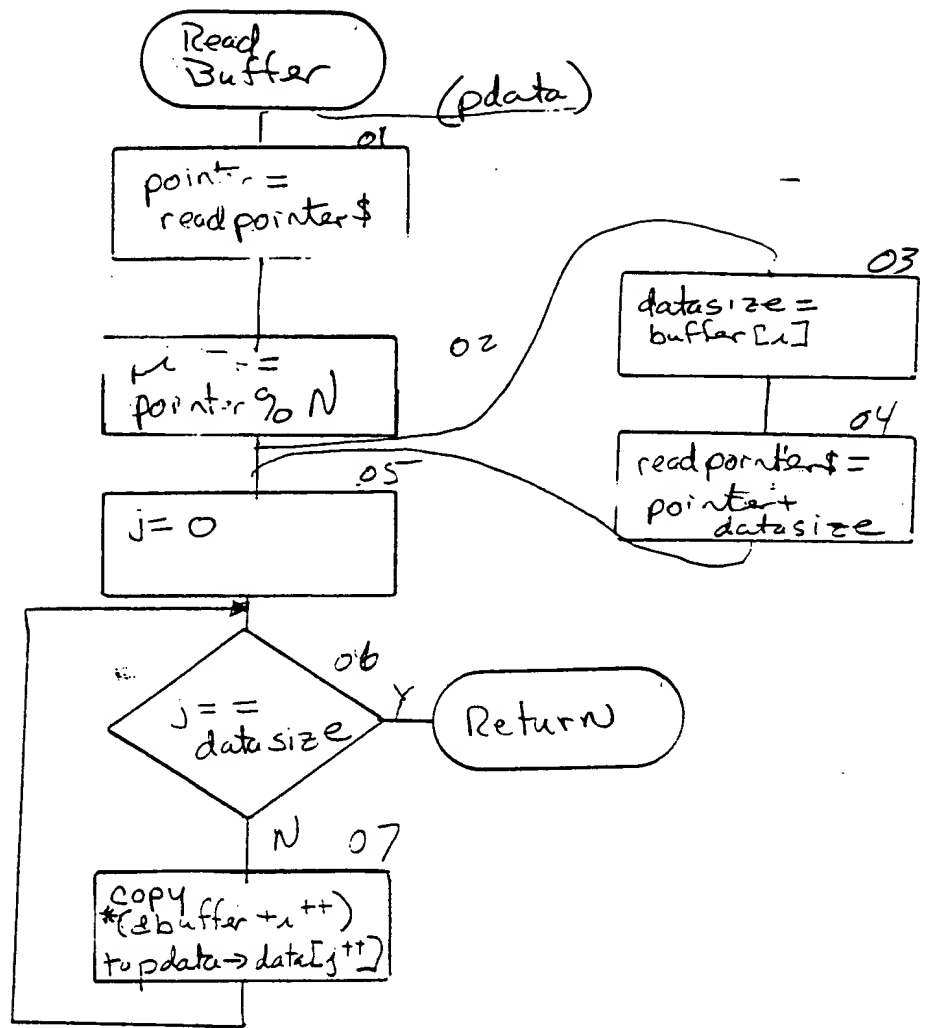 Read
Buffer
(pdata)
01
=
readpointer$
02
=
% N
03
datasize =
buffer[i]
04
readpointer$ =
pointer +
datasize
05
j = 0
06
j = =
datasize
Y
Return
N
07
copy
*(&buffer + i++)
to pdata→data[j++]